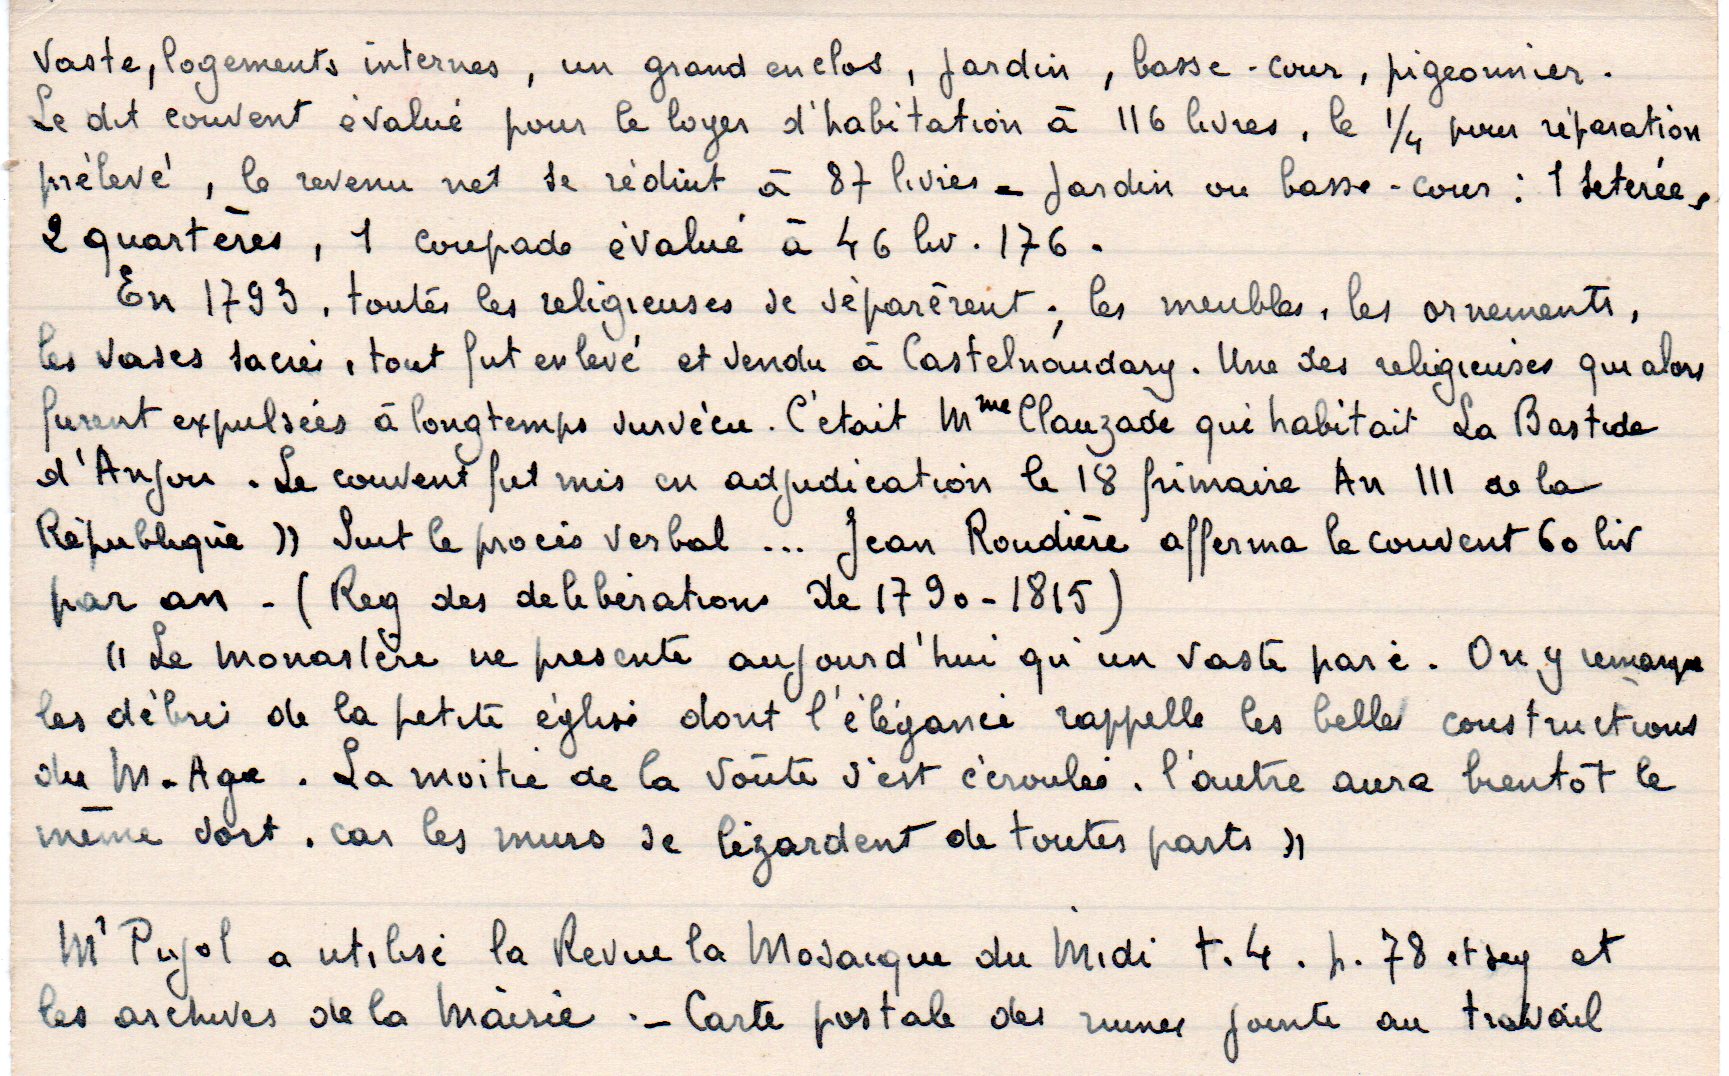 Vaste, logements internes, un grand enclos, jardin, basse-cour, pigeonnier.
Le dit couvent évalué pour le loyer d'habitation à 116 livres, le 1/4 pour réparation
prélevé, le revenu net se réduit à 87 livres - Jardin ou basse-cour : 1 seterée,
2 quartères, 1 coupade évalué à 46 liv. 176.
En 1793, toutes les religieuses se séparèrent ; les meubles, les ornements,
les vases sacrés, tout fut enlevé et vendu à Castelnaudary. Une des religieuses qui alors
furent expulsées à longtemps survécu. C'était Mme Clauzade qui habitait La Bastide
d'Anjou. Le couvent fut mis en adjudication le 18 frimaire An III de la
République » Suit le procès verbal ... Jean Roudière afferma le couvent 60 liv
par an - (Reg des délibérations de 1790-1815)
« Le monastère ne présente aujourd'hui qu'un vaste parc. On y remarque
les débris de la petite église dont l'élégance rappelle les belles constructions
du M-Age. La moitié de la voûte s'est écroulée, l'autre aura bientôt le
même sort, car les murs se lézardent de toutes parts »
Mr Pujol a utilisé la Revue la Mosaïque du Midi t. 4. p. 78 et seq et
les archives de la Mairie. - Carte postale des ruines jointe au travail